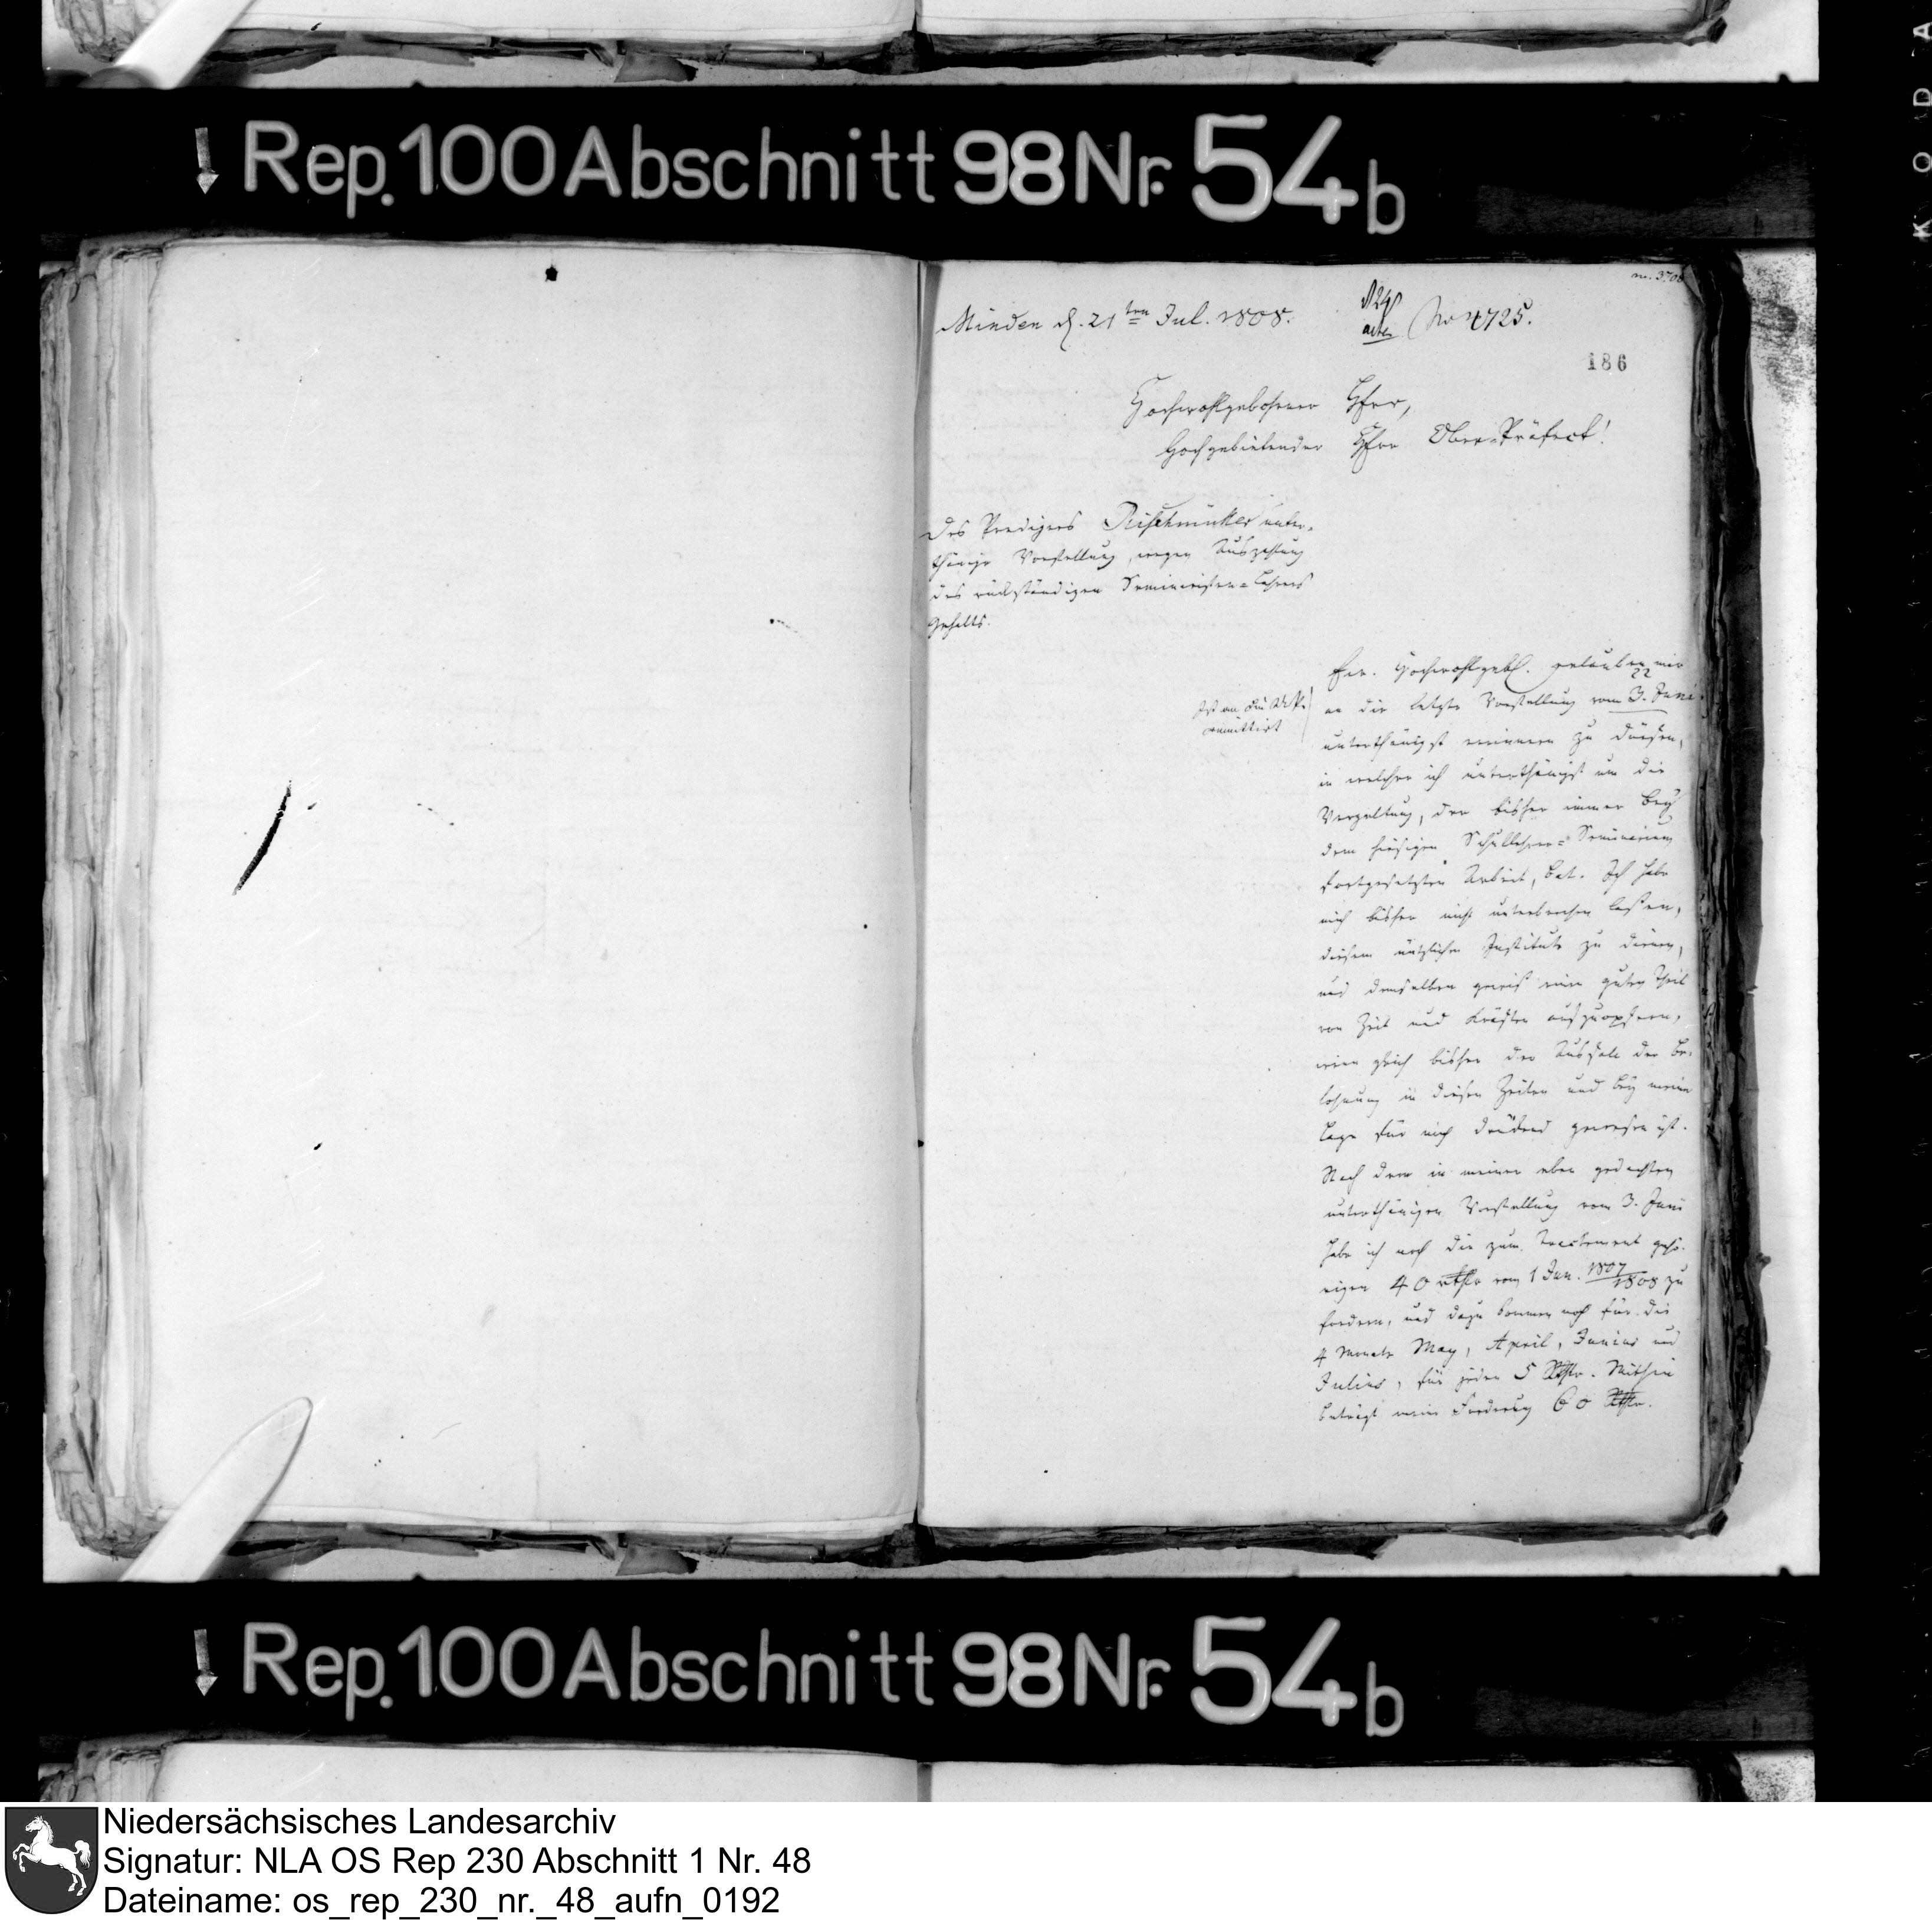 Rep. 100 Abschnitt 98 Nr. 54b
KODA
Minden d. 21ten Jul. 1808.
No 4725.
186
Hochwohlgebohrner Herr,
Hochgebietender Herr Ober-Präfect!
Des Predigers Rischmüller unter-
thänige Vorstellung, wegen Auszahlung
des rückständigen Seminaristen-Lehrers
Gehalts.
Ew. Hochwohlgeb. erlauben mir
an die letzte Vorstellung vom 3. Juni
22
unterthänigst erinnern zu dürfen,
in welcher ich unterthänigst um die
Vergeltung, der bisher immer bey
dem hiesigen Schullehrer-Seminarium
fortgesetzten Arbeit, bat. Ich habe
mich bisher nicht unterbrechen laßen,
diesem nützlichen Institute zu dienen,
und demselben gewiß einen guten Theil
von Zeit und Kräften aufzuopfern,
wenn gleich bisher der Ausfall der Be-
lohnung in diesen Zeiten und bey meiner
Lage für mich drückend gewesen ist.
Nach dem in meiner eben gedachten
unterthänigen Vorstellung vom 3. Juni
habe ich noch die zum Tractement gehö-
rigen 40 rthlr vom 1 Jun. 1807/1808 zu
fordern, und dazu kommen noch für die
4 Monate May, April, Junius und
Julius, für jeden 5 Rthlr. Mithin
beträgt meine Forderung 60 Rthlr.
Rep. 100 Abschnitt 98 Nr. 54b
Niedersächsisches Landesarchiv
Signatur: NLA OS Rep 230 Abschnitt 1 Nr. 48
Dateiname: os_rep_230_nr._48_aufn_0192